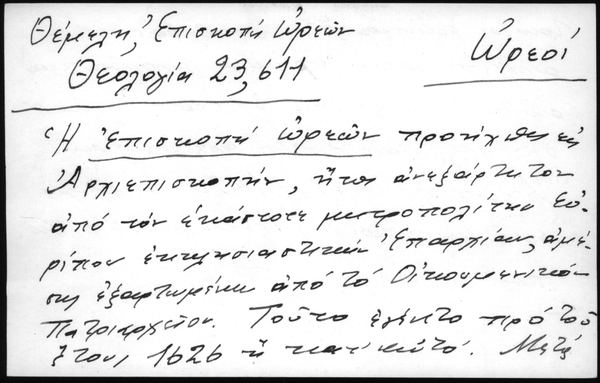 Θέμελη, Ἐπισκοπή Ὠρεῶν
Ὠρεοί
Θεολογία 23, 611
Ἡ Ἐπισκοπή Ὠρεῶν προήχθη εἰς
Ἀρχιεπισκοπήν, ἤτοι ἀνεξάρτητον
ἀπό τόν ἑκάστοτε μητροπολίτην Εὐ-
ρίπου ἐκκλησιαστικήν Ἐπαρχίαν, ἀμέ-
σως ἐξαρτωμένην ἀπό τό Οἰκουμενικόν
Πατριαρχεῖον. Τοῦτο ἐγένετο πρό τοῦ
ἔτους 1626 ἤ κατ' αὐτό. Μετά